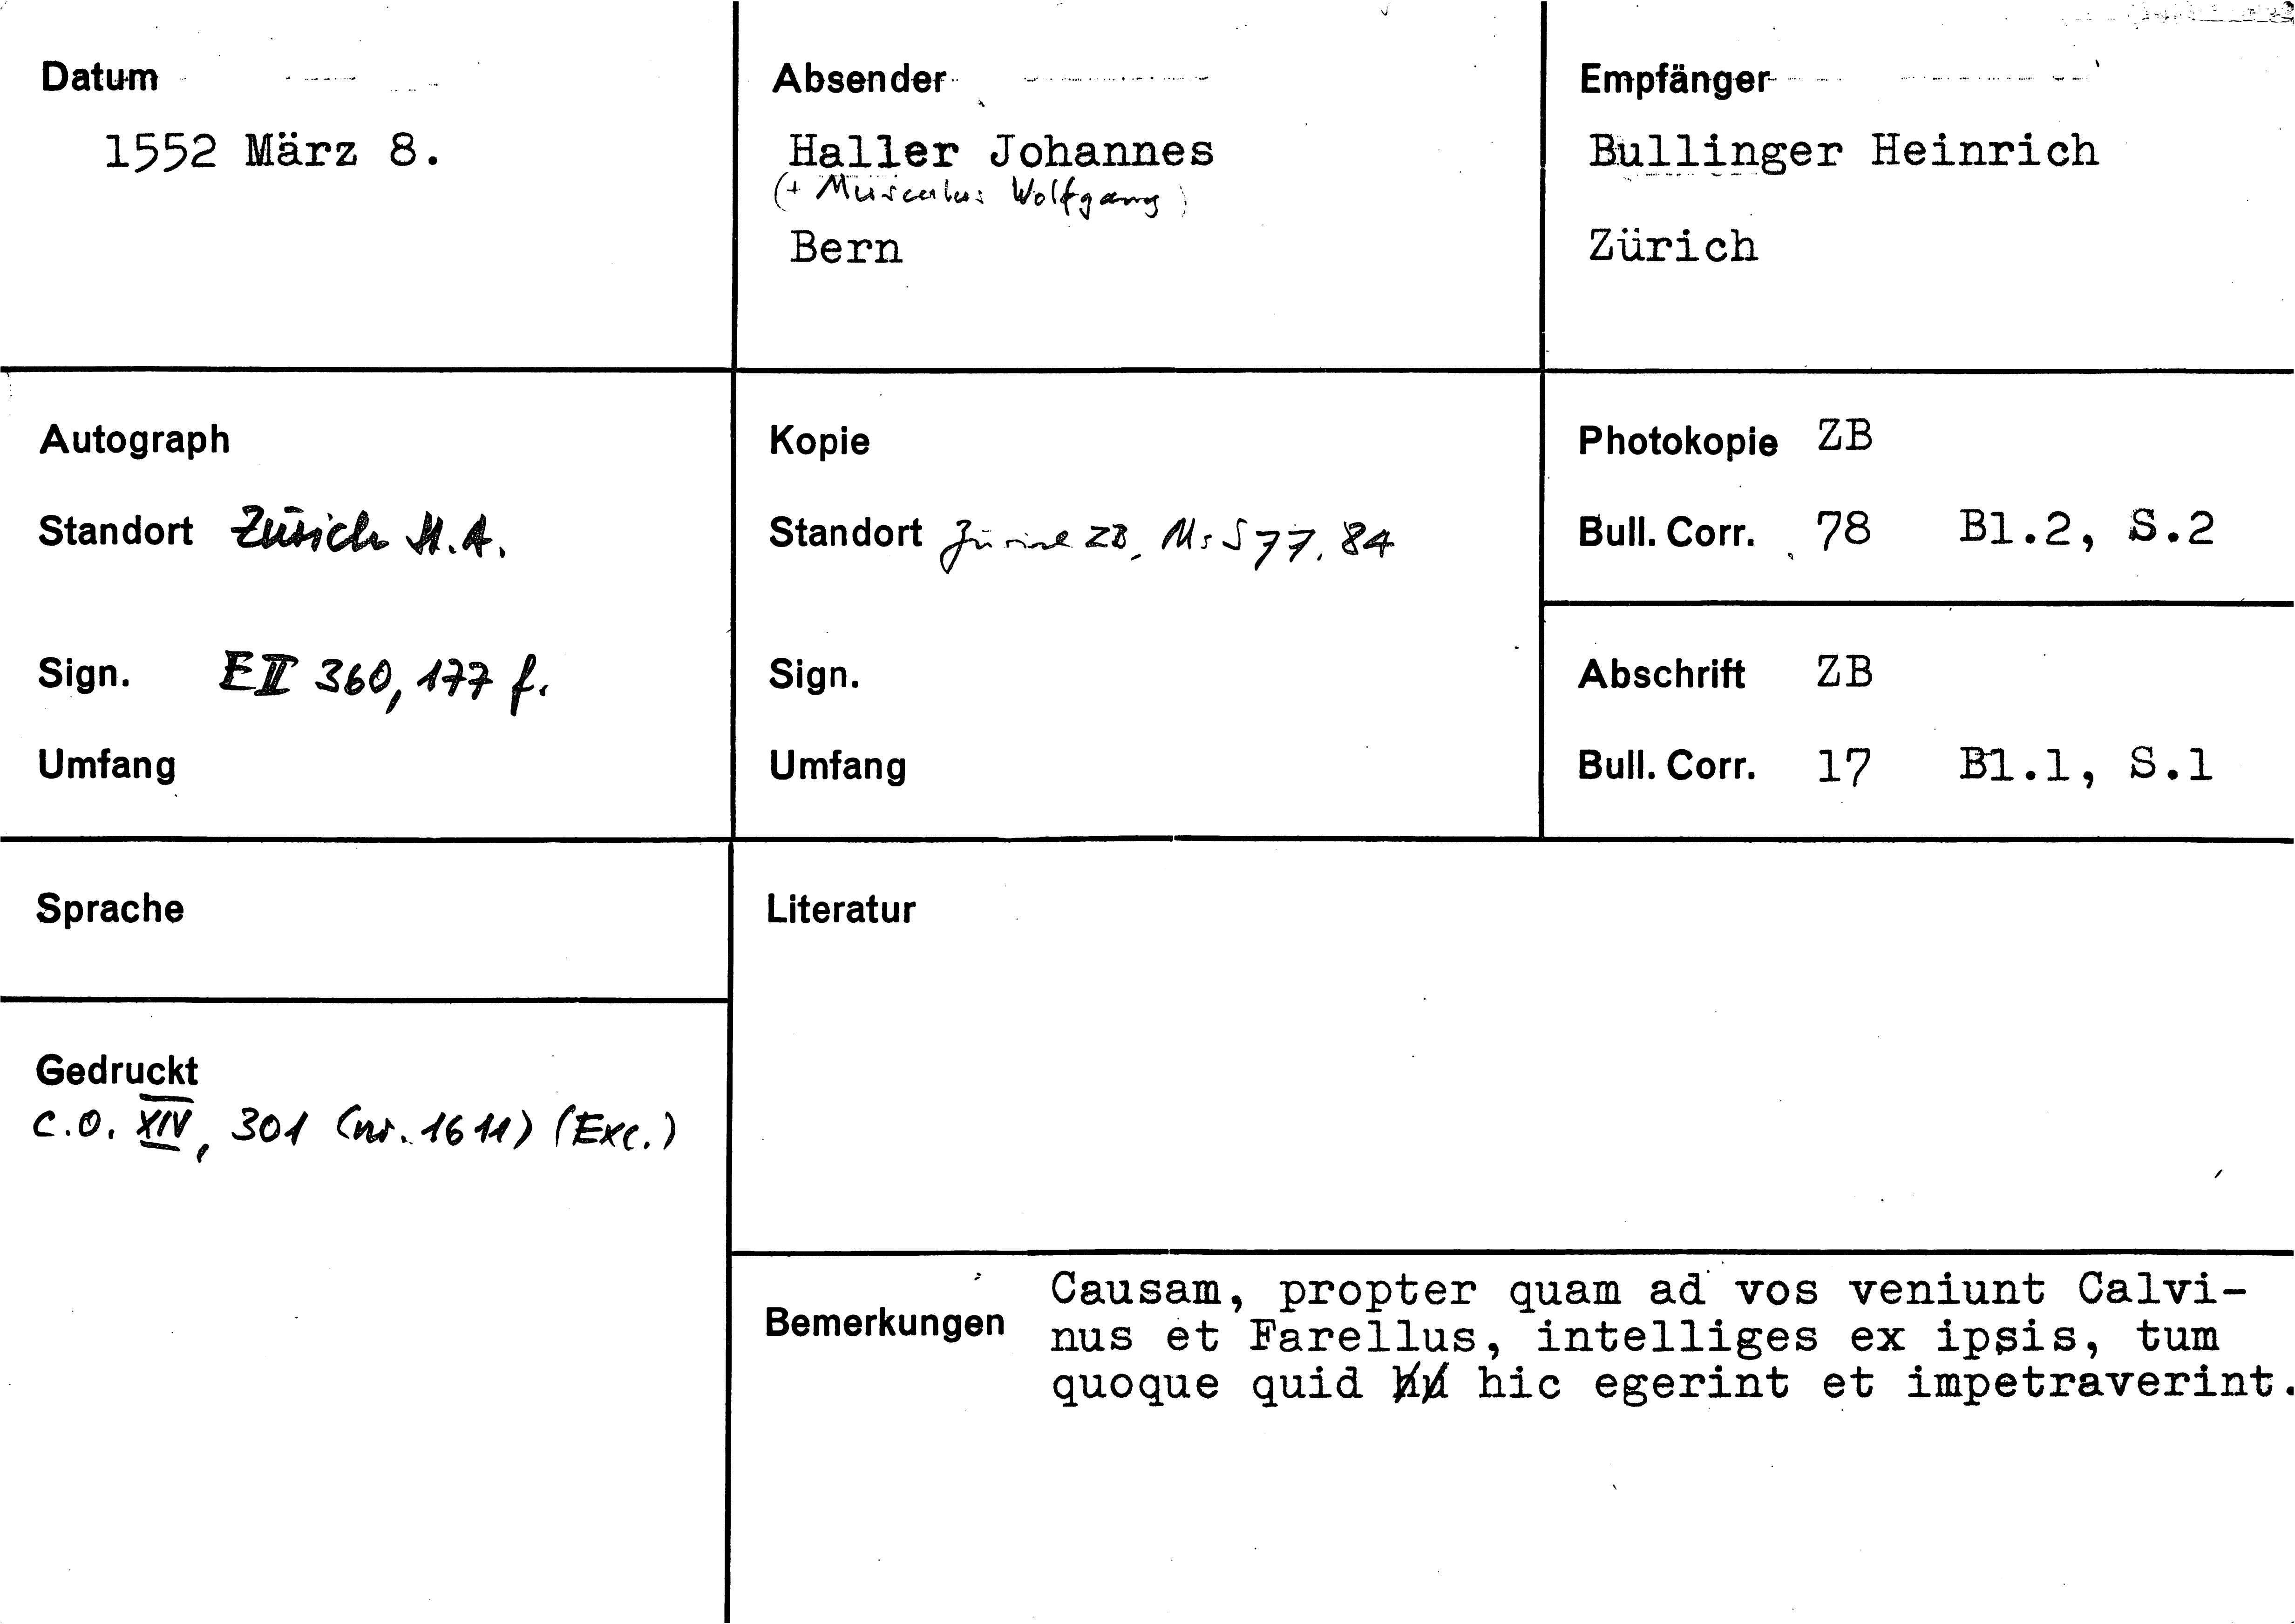 Datum
1552 März 8.
Absender
Haller Johannes
(+ Musculus Wolfgang)
Bern
Empfänger
Bullinger Heinrich
Zürich
Autograph
Standort Zürich St.A.
Sign. E II 360, 177 f.
Umfang
Kopie
Standort Zürich ZB, Ms S 77, 84
Sign.
Umfang
Photokopie ZB
Bull. Corr. 78 Bl.2, S.2
Abschrift ZB
Bull. Corr. 17 Bl.1, S.1
Sprache
Literatur
Gedruckt
C.O. XIV, 301 (nr. 1611) (Exc.)
Bemerkungen
Causam, propter quam ad vos veniunt Calvi-
nus et Farellus, intelliges ex ipsis, tum
quoque quid hic egerint et impetraverint.